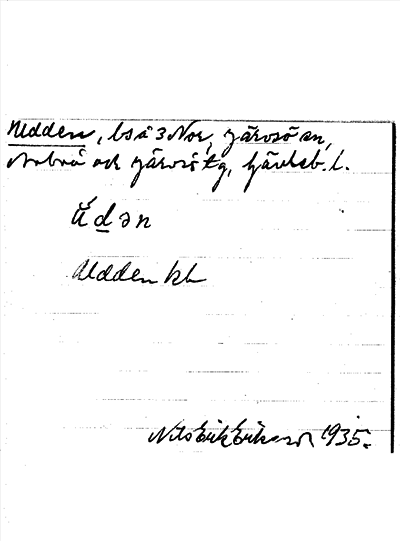 Udden, bs å 3 Nor, Järvsö sn,
Norbo och Järvsö tg, Gävleb. l.
ŭ́dən
Udden kb
Nils Erik Eriksson 1935.